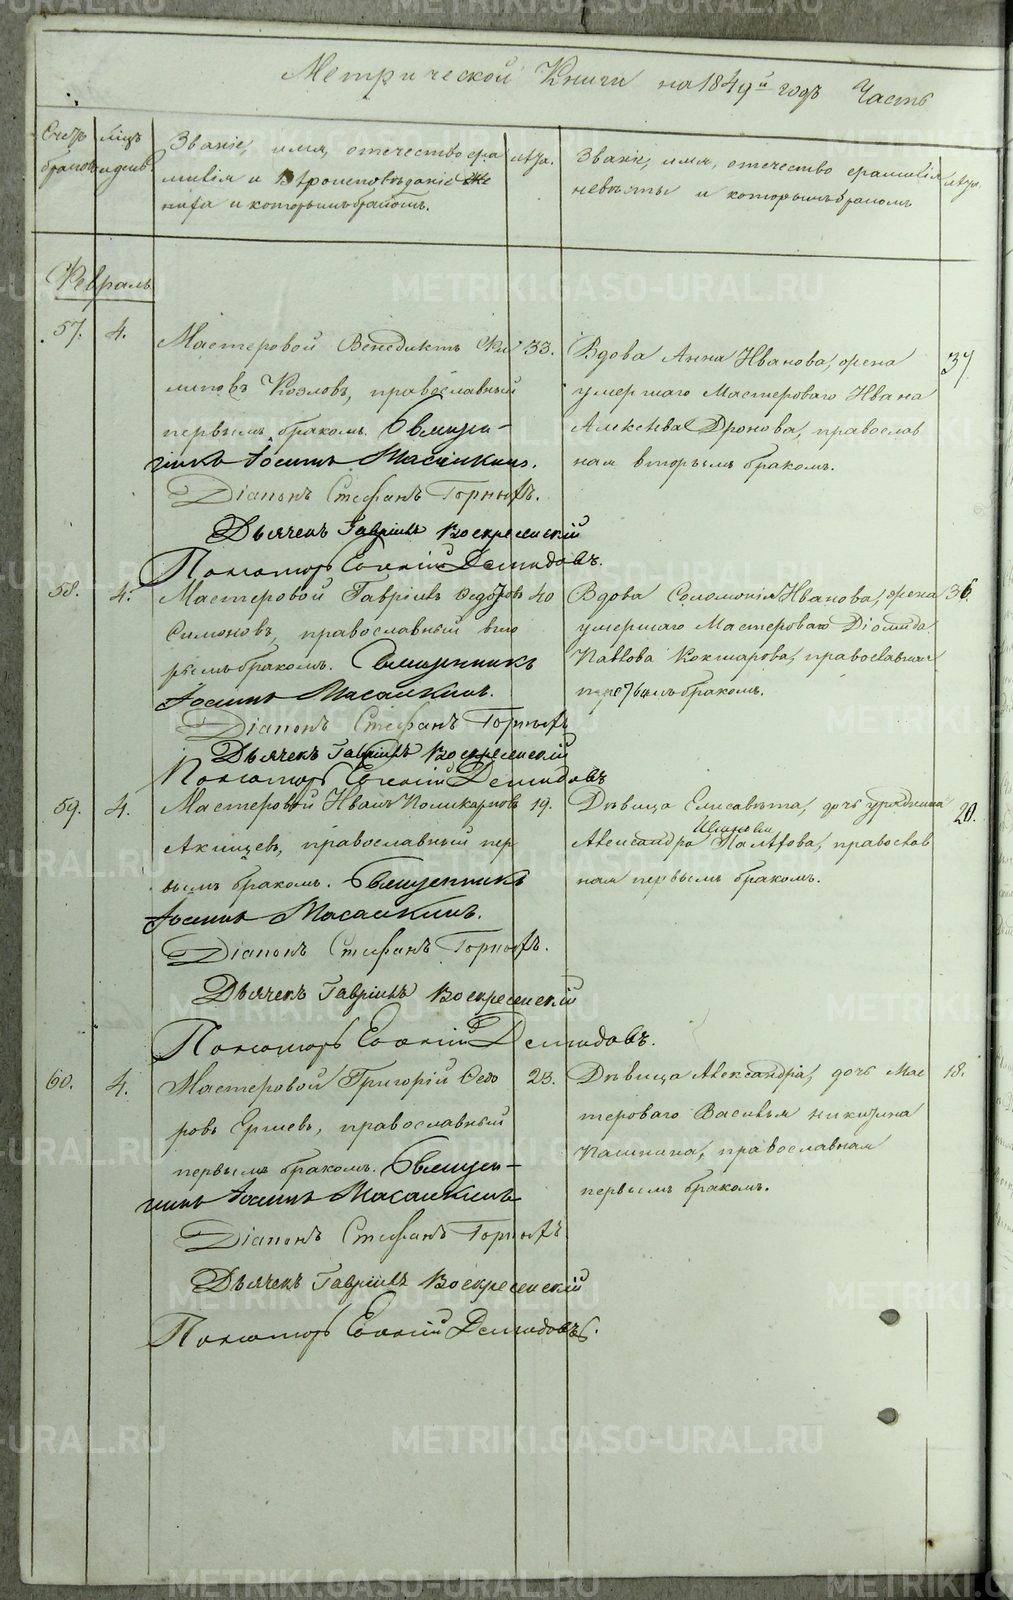 Метрической Книги на 1849й годъ Часть
Счетъ
браковъ
мѣсяцъ
и день
Званіе, имя, отечество фа
милія и вѣроисповѣданіе же
ниха и которымъ бракомъ.
лѣта.
Званіе, имя, отечество фамилія
невѣсты и которымъ бракомъ
лѣта.
Февраль
57. 4. Мастеровой Венедиктъ Фи 33.
липовъ Козловъ, православный
первымъ бракомъ. Священ-
никъ Іоаннъ Масалкинъ.
Діаконъ Стефанъ Горныхъ.
Дьячекъ Гавріилъ Воскресенскій
Пономарь Евгеній Демидовъ.
Вдова Анна Иванова, жена 37
умершаго Мастероваго Ивана
Алексѣева Дронова, православ
ная вторымъ бракомъ.
58. 4. Мастеровой Гавріилъ Ѳедоровъ 40
Симоновъ, православный вто
рымъ бракомъ. Священникъ
Іоаннъ Масалкинъ.
Діаконъ Стефанъ Горныхъ
Дьячекъ Гавріилъ Воскресенскій
Пономарь Евгеній Демидовъ
Вдова Соломонія Иванова, жена 36.
умершаго Мастероваго Діомида
Павлова Кокшарова, православная
третьимъ бракомъ.
59. 4. Мастеровой Иванъ Поликарповъ 19.
Акищевъ, православный пер
вымъ бракомъ. Священникъ
Іоаннъ Масалкинъ.
Діаконъ Стефанъ Горныхъ.
Дьячекъ Гавріилъ Воскресенскій
Пономарь Евгеній Демидовъ.
Дѣвица Елисавета, дочь урядника 20.
Иванова
Александра Палтова, православ
ная первымъ бракомъ.
60. 4. Мастеровой Григорій Ѳедо 23.
ровъ Ершевъ, православный
первымъ бракомъ. Священ-
никъ Іоаннъ Масалкинъ
Діаконъ Стефанъ Горныхъ.
Дьячекъ Гавріилъ Воскресенскій
Пономарь Евгеній Демидовъ.
Дѣвица Александра, дочь Мас 18.
тероваго Василья Никитина
Пашнина, православная
первымъ бракомъ.
METRIKI.GASO-URAL.RU